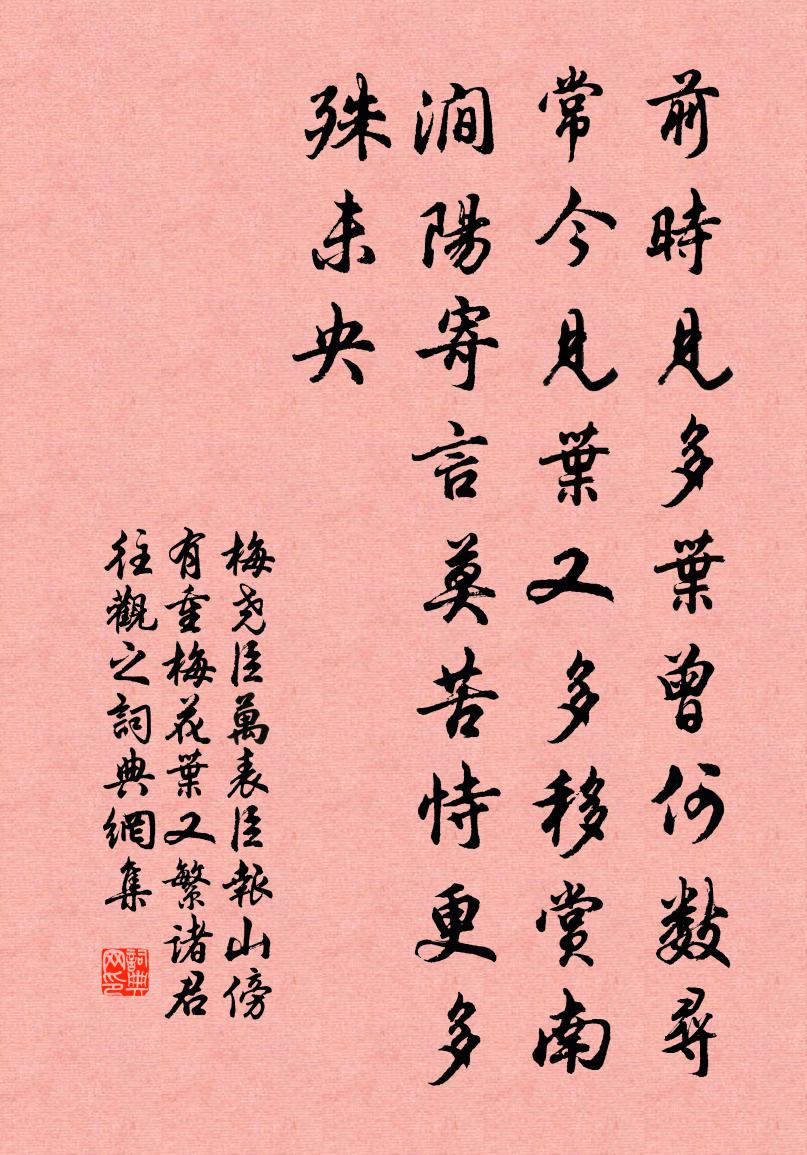 前時見多葉曾何數尋
常今見葉又多移賞南
澗陽寄言莫苦恃更多
殊未央
梅尧臣萬表臣報山傍
有重梅花葉又繁諸君
往觀之詞典網集
詞典网印